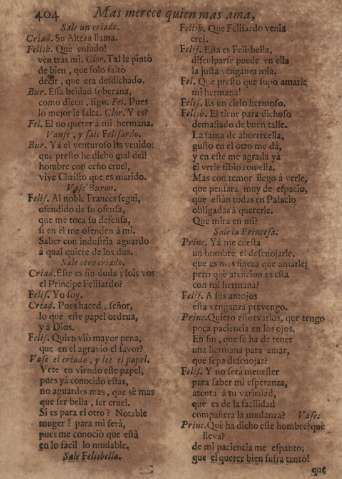 404 Mas merece quien mas ama,
Sale un criado.
Criad. Su Alteza llama.
Felisb. Que enfado!
ven tras mi. Clor. Tal le pintò
de bien, que solo faltò
decir, que era desdichado.
Bur. Essa beldad soberana,
como dicen, sigo. Fel. Pues
lo mejor le falta. Clor. Y es?
Fel. El no querer à mi hermana.
Vanse, y sale Felisardo.
Bur. Yà el venturoso ha venido:
que presto he dicho qual es!
hombre con ceño cruel,
vive Christo que es marido.
Vase Buron.
Felis. Al noble Frances segui,
ofendido de su ofensa,
que me toca su defensa,
si en èl me ofenden à mi.
Saber con industria aguardo
à qual quiere de los dos.
Sale otro criado.
Criad. Este es sin duda; sois vos
el Principe Felisardo?
Felis. Yo soy.
Criad. Pues haced, señor,
lo que este papel ordena,
y à Dios.
Felis. Quien viò mayor pena,
que en el agravio el favor?
Vase el criado, y lee el papel.
Vete en viendo este papel,
pues yà conocido estas,
no aguardes mas, que sè mas
que ser bella, ser cruel.
Si es para el otro? Notable
muger? para mi serà,
pues me conociò que està
en lo facil lo mudable.
Sale Felisbella.
Felisb. Que Felisardo venia
crei.
Felis. Esta es Felisbella,
disculparse puede en ella
la justa venganza mia.
Fel. Que presto que supo amarle
mi hermana!
Felis. Es un cielo hermoso.
Felisb. El tiene para dichoso
demasiado de buen talle.
La fama de aborrecella,
gusto en el otro me dà,
y en este me agrada yà
el verle tibio con ella.
Mas con temor llego à verle,
que pensarà muy de espacio,
que estàn todas en Palacio
obligadas à quererle.
Que mira en mi?
Sale la Princesa.
Princ. Yà me cuesta
un hombre el desenojarle,
que es mas fineza que amarle;
pero què atencion es esta
con mi hermana?
Felis. A sus antojos
esta venganza prevengo.
Princ. Quiero estorvarlos, que tengo
poca paciencia en los ojos.
En fin, que se ha de tener
una hermana para amar,
que sepa desenojar?
Felis. Y no serà menester
para saber mi esperanza,
atenta à tu variedad,
que es de la facilidad
compañera la mudanza? Vase.
Princ. Què ha dicho este hombre? què
lleva?
de mi paciencia me espanto;
que el querer bien sufra tanto!
que